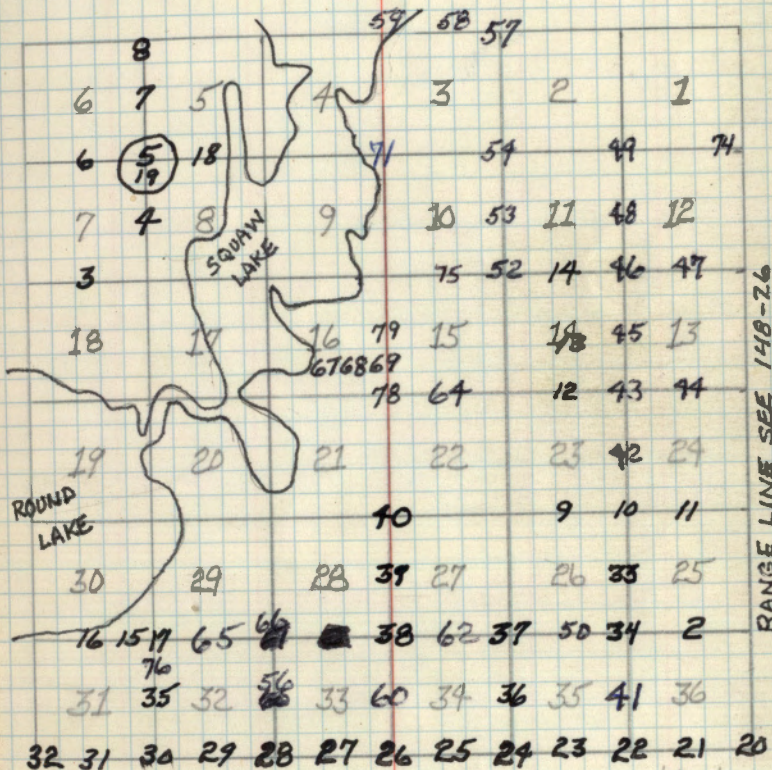 59 58 57
8
6 7 5 4 3 2 1
6 5 18 71 54 49 74
19
7 4 8 9 10 53 11 48 12
SQUAW
LAKE
3 75 52 14 46 47
18 17 16 79 15 45 13
67 68 69
78 64 12 43 44
19 20 21 22 23 42 24
ROUND
LAKE
40 9 10 11
30 29 28 39 27 26 33 25
66
16 15 17 65 38 62 37 50 34 2
76
56
31 35 32 33 60 34 36 35 41 36
32 31 30 29 28 27 26 25 24 23 22 21 20
RANGE LINE SEE 148-26